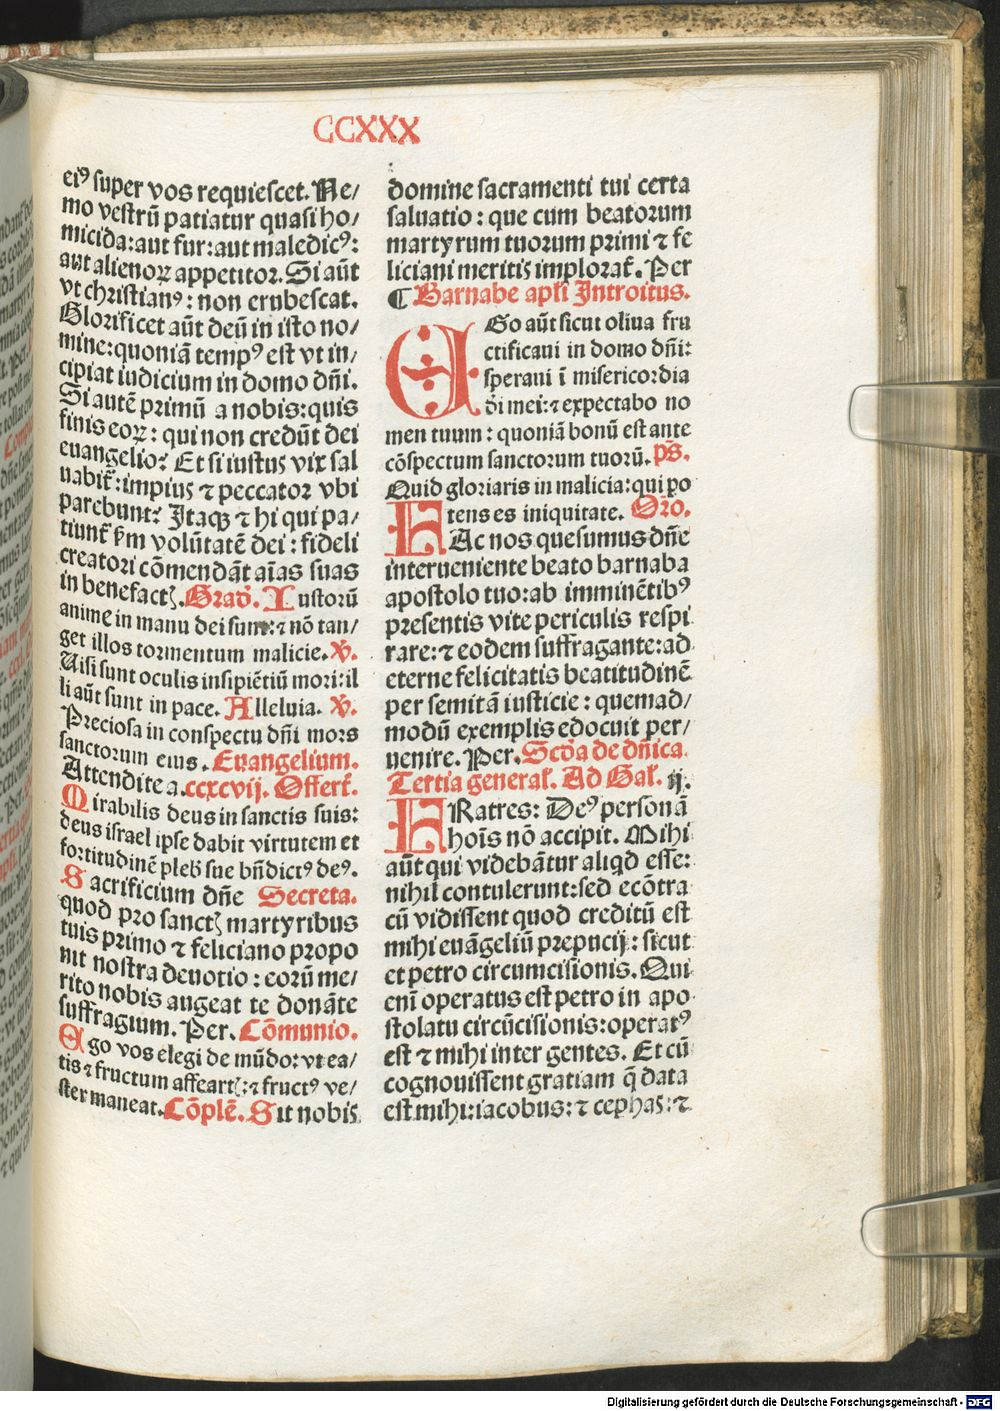 CCXXX
eiꝰ super vos requiescet. Ne/
mo vestrũ patiatur quasi ho/
micida: aut fur: aut maledicꝰ:
aut alienoꝝ appetitor. Si aũt
vt christianꝰ: non erubescat.
Glorificet aũt deũ in isto no/
mine: quoniã tempꝰ est vt in/
cipiat iudicium in domo dñi.
Si autẽ primũ a nobis: quis
finis eoꝝ: qui non credũt dei
euangelio? Et si iustus vix sal
uabit̃: impius ⁊ peccator vbi
parebunt? Itaqꝫ ⁊ hi qui pa/
tiunt̃ ẜm volũtatẽ dei: fideli
creatori cõmendãt aĩas suas
in benefactꝭ. Grad̃. Iustorũ
anime in manu dei sunt: ⁊ nõ tan/
get illos tormentum malicie. V̕.
Uisi sunt oculis insipiẽtiũ mori: il
li aũt sunt in pace. Alleluia. V̕.
Preciosa in conspectu dñi mors
sanctorum eius. Euangelium.
Attendite a. ccxcvij. Offert̃.
Mirabilis deus in sanctis suis:
deus israel ipse dabit virtutem et
fortitudinẽ pleb̃ sue bñdictꝰ deꝰ.
Sacrificium dñe Secreta.
quod pro sanctꝭ martyribus
tuis primo ⁊ feliciano propo
nit nostra deuotio: eorũ me/
rito nobis augeat te donãte
suffragium. Per. Cõmunio.
Ego vos elegi de mũdo: vt ea/
tis ⁊ fructum affeartꝭ: ⁊ fructꝰ ve/
ster maneat. Cõplẽ. Sit nobis
domine sacramenti tui certa
saluatio: que cum beatorum
martyrum tuorum primi ⁊ fe
liciani meritis implorat̃. Per
¶ Barnabe apl̃i Introitus.
EGo aũt sicut oliua fru
ctificaui in domo dñi:
speraui ĩ misericordia
dĩ mei: ⁊ expectabo no
men tuum: quoniã bonũ est ante
cõspectum sanctorum tuorũ. p̃s.
Quid gloriaris in malicia: qui po
tens es iniquitate. Or̃o.
HAc nos quesumus dñe
interueniente beato barnaba
apostolo tuo: ab imminẽtibꝰ
presentis vite periculis respi
rare: ⁊ eodem suffragante: ad
eterne felicitatis beatitudinẽ
per semitã iusticie: quemad/
modũ exemplis edocuit per/
uenire. Per. Scd̃a de dñica.
Tertia general̃. Ad Gal̃. ij.
FRatres: Deꝰ personã
hoĩs nõ accipit. Mihi
aũt qui videbãtur aliqd esse:
nihil contulerunt: sed ecõtra
cũ vidissent quod creditũ est
mihi euãgeliũ prepucij: sicut
et petro circumcisionis. Qui
enĩ operatus est petro in apo
stolatu circũcisionis: operatꝰ
est ⁊ mihi inter gentes. Et cũ
cognouissent gratiam q̃ data
est mihi: iacobus: ⁊ cephas: ⁊
Digitalisierung gefördert durch die Deutsche Forschungsgemeinschaft - DFG